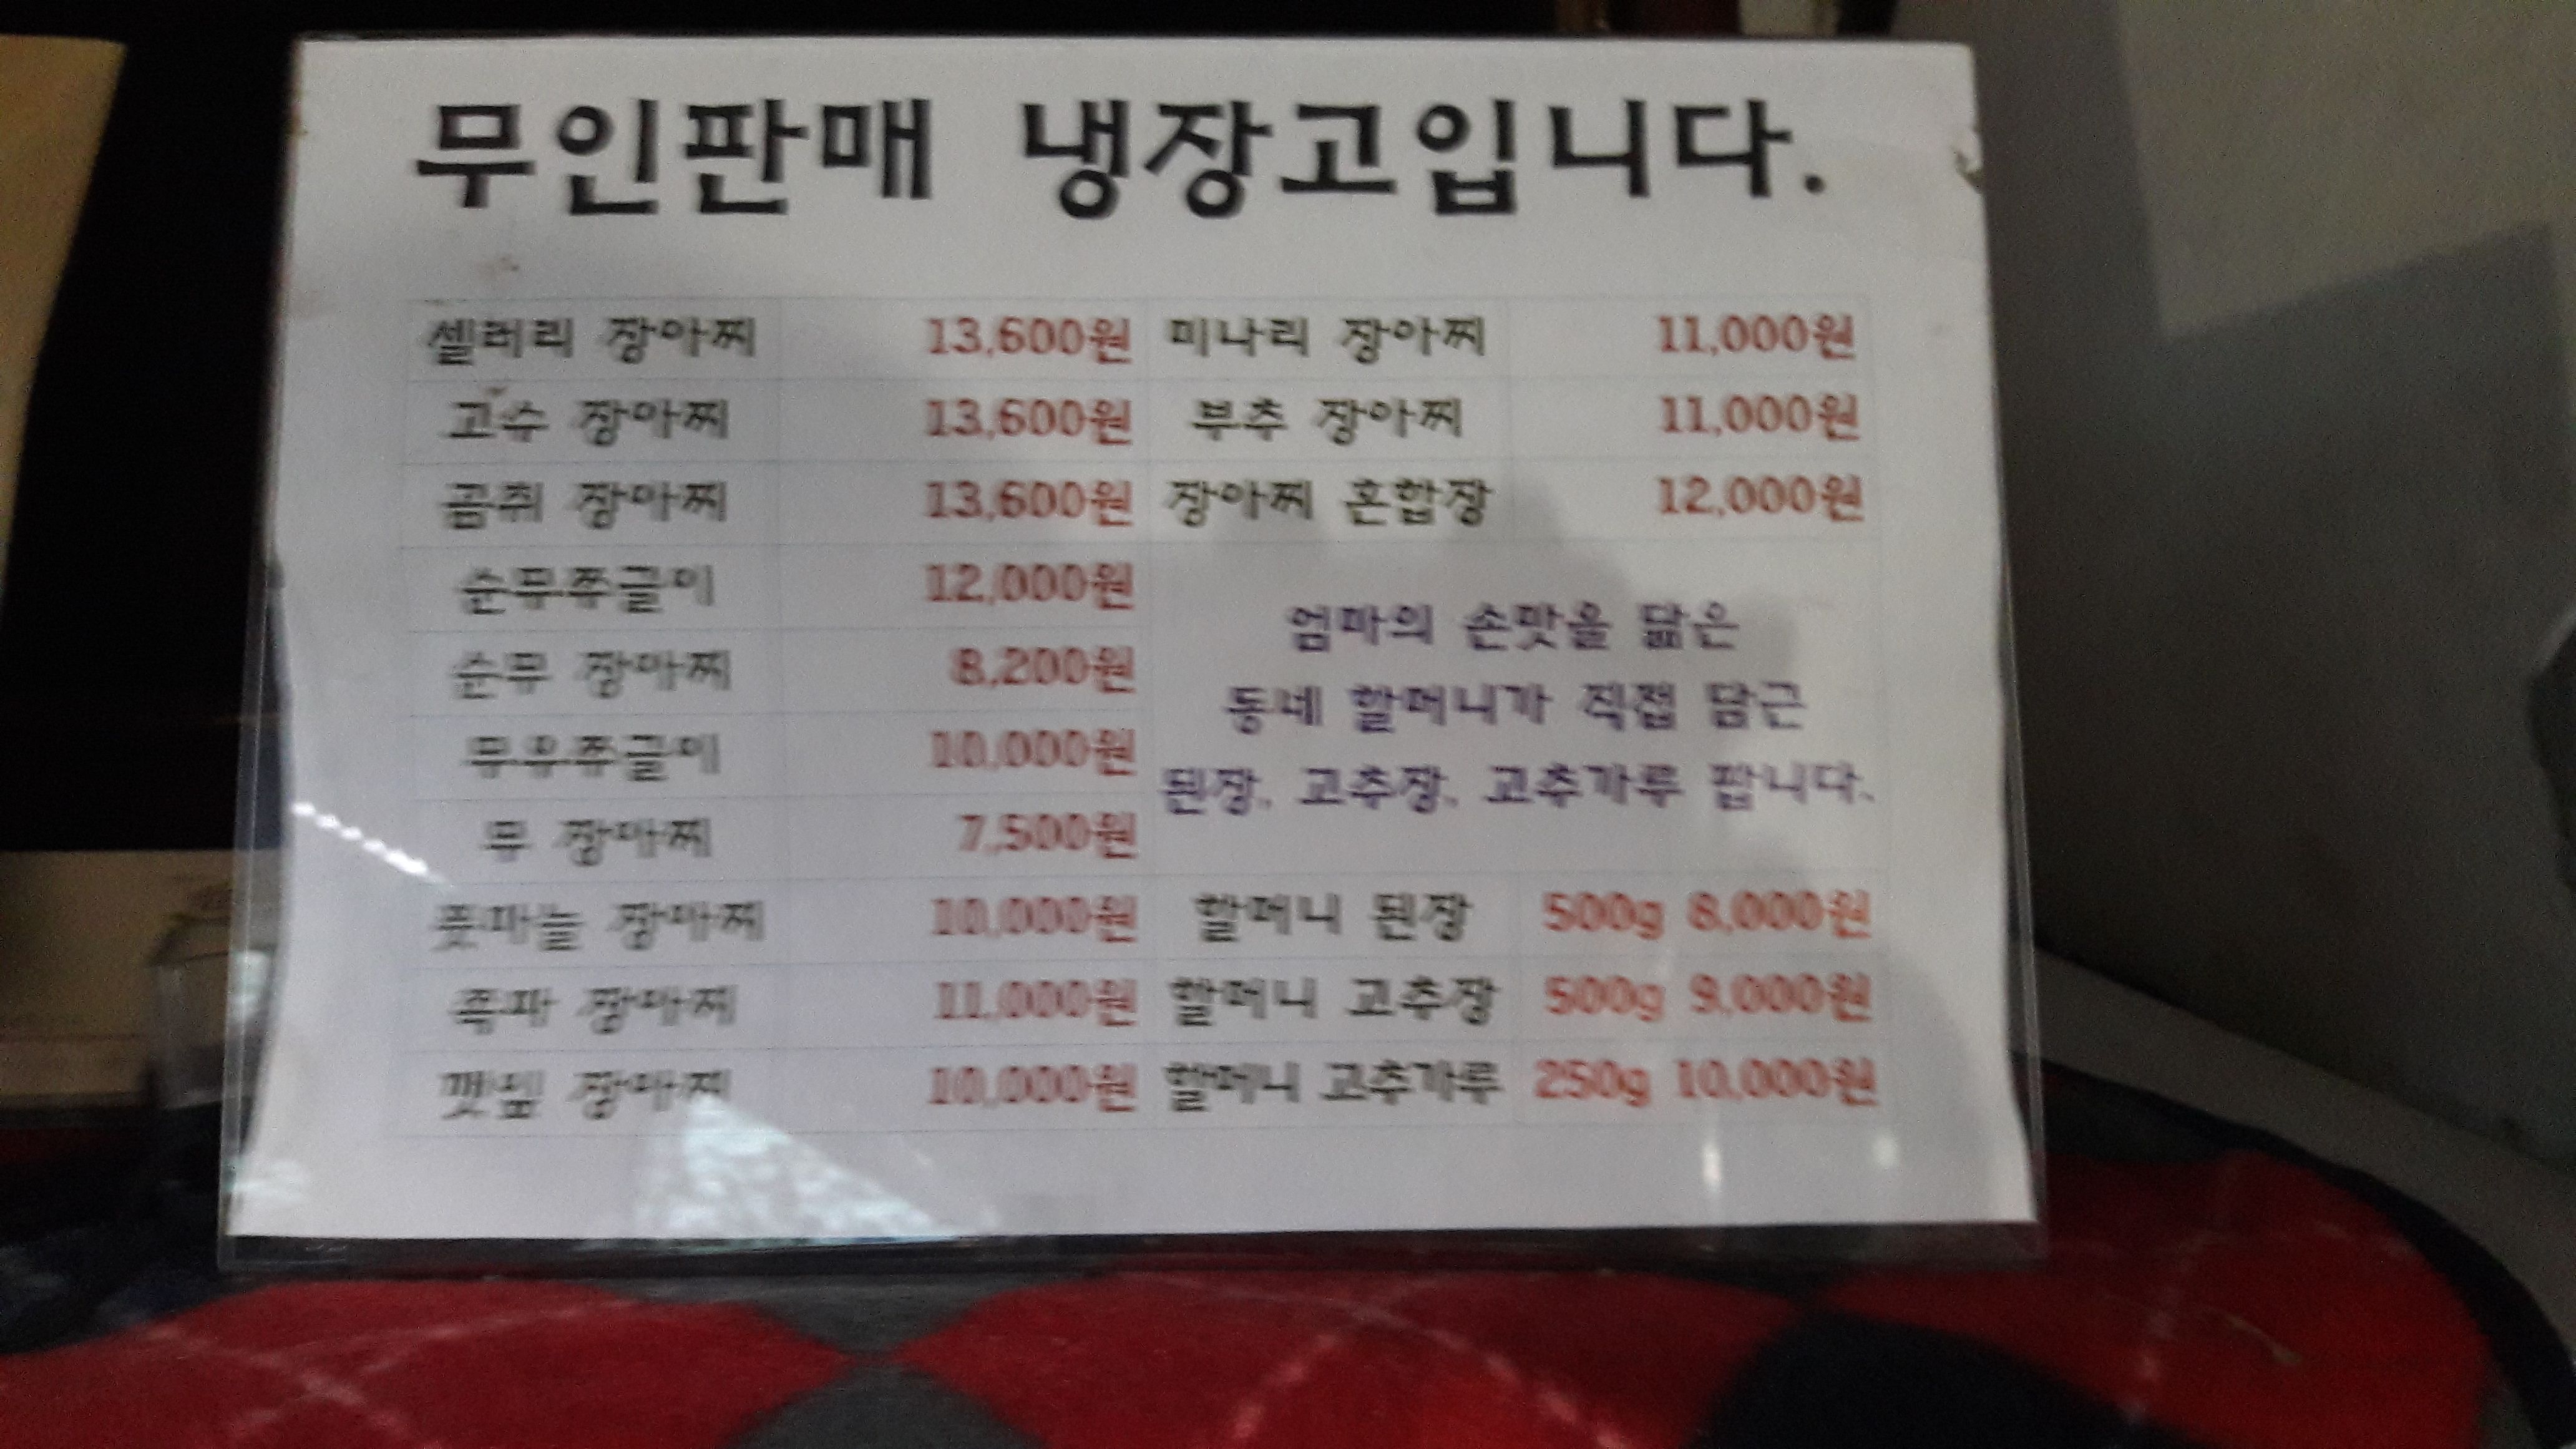 무인판매 냉장고입니다.
셀러리 장아찌 13,600원 미나리 장아찌 11,000원
고수 장아찌 13,600원 부추 장아찌 11,000원
곰취 장아찌 13,600원 장아찌 혼합장 12,000원
순무쭈글이 12,000원
엄마의 손맛을 닮은
순무 장아찌 8,200원
동네 할머니가 직접 담근
무우쭈글이 10,000원
된장, 고추장, 고추가루 팝니다.
무 장아찌 7,500원
풋마늘 장아찌 10,000원 할머니 된장 500g 8,000원
쪽파 장아찌 11,000원 할머니 고추장 500g 9,000원
깻잎 장아찌 10,000원 할머니 고추가루 250g 10,000원